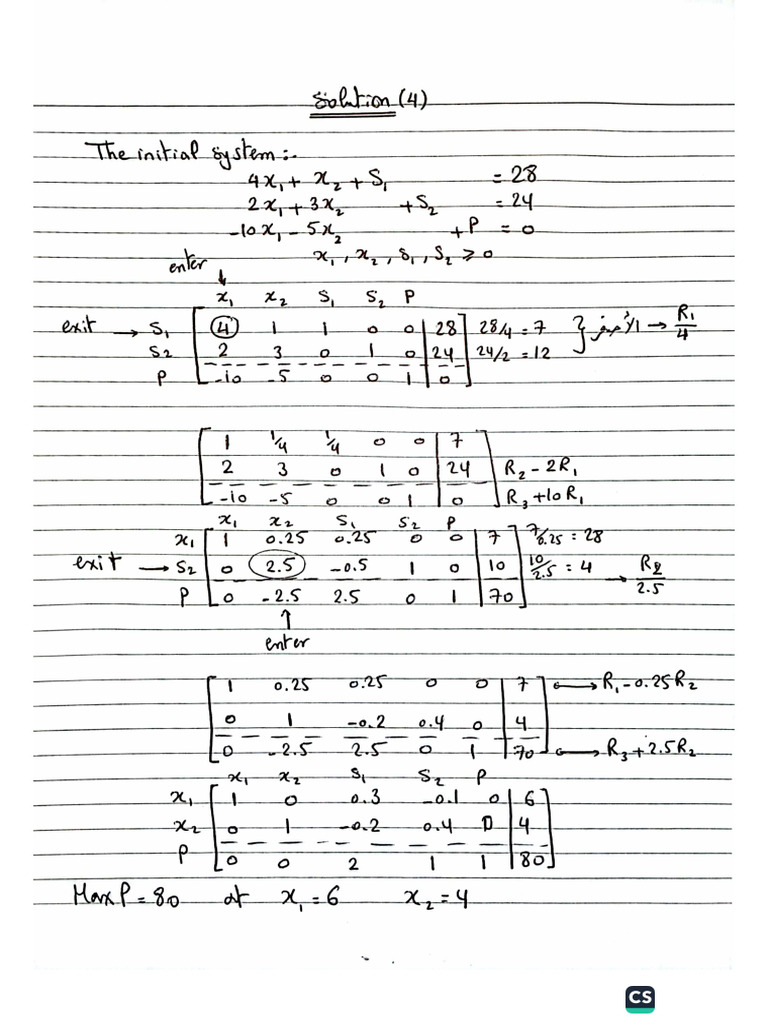 Solution (4)
The initial system:-
4x₁ + x₂ + S₁ = 28
2x₁ + 3x₂ + S₂ = 24
-10x₁ - 5x₂ + P = 0
x₁, x₂, S₁, S₂ ≥ 0
enter
x₁ x₂ S₁ S₂ P
exit → S₁ 4 1 1 0 0 28 28/4 = 7 } الأصغر → R₁/4
S₂ 2 3 0 1 0 24 24/2 = 12
P -10 -5 0 0 1 0
1 1/4 1/4 0 0 7
2 3 0 1 0 24 R₂ - 2R₁
-10 -5 0 0 1 0 R₃ + 10R₁
x₁ x₂ S₁ S₂ P
x₁ 1 0.25 0.25 0 0 7 7/0.25 = 28
exit → S₂ 0 2.5 -0.5 1 0 10 10/2.5 = 4 → R₂/2.5
P 0 -2.5 2.5 0 1 70
enter
1 0.25 0.25 0 0 7 ↔ R₁ - 0.25R₂
0 1 -0.2 0.4 0 4
0 -2.5 2.5 0 1 70 ↔ R₃ + 2.5R₂
x₁ x₂ S₁ S₂ P
x₁ 1 0 0.3 -0.1 0 6
x₂ 0 1 -0.2 0.4 0 4
P 0 0 2 1 1 80
Max P = 80 at x₁ = 6 x₂ = 4
CS